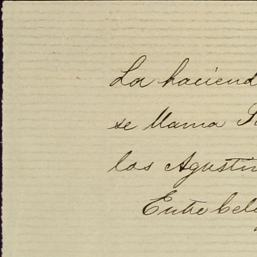 La haciend
se llama
los Agustin
Entre Cela